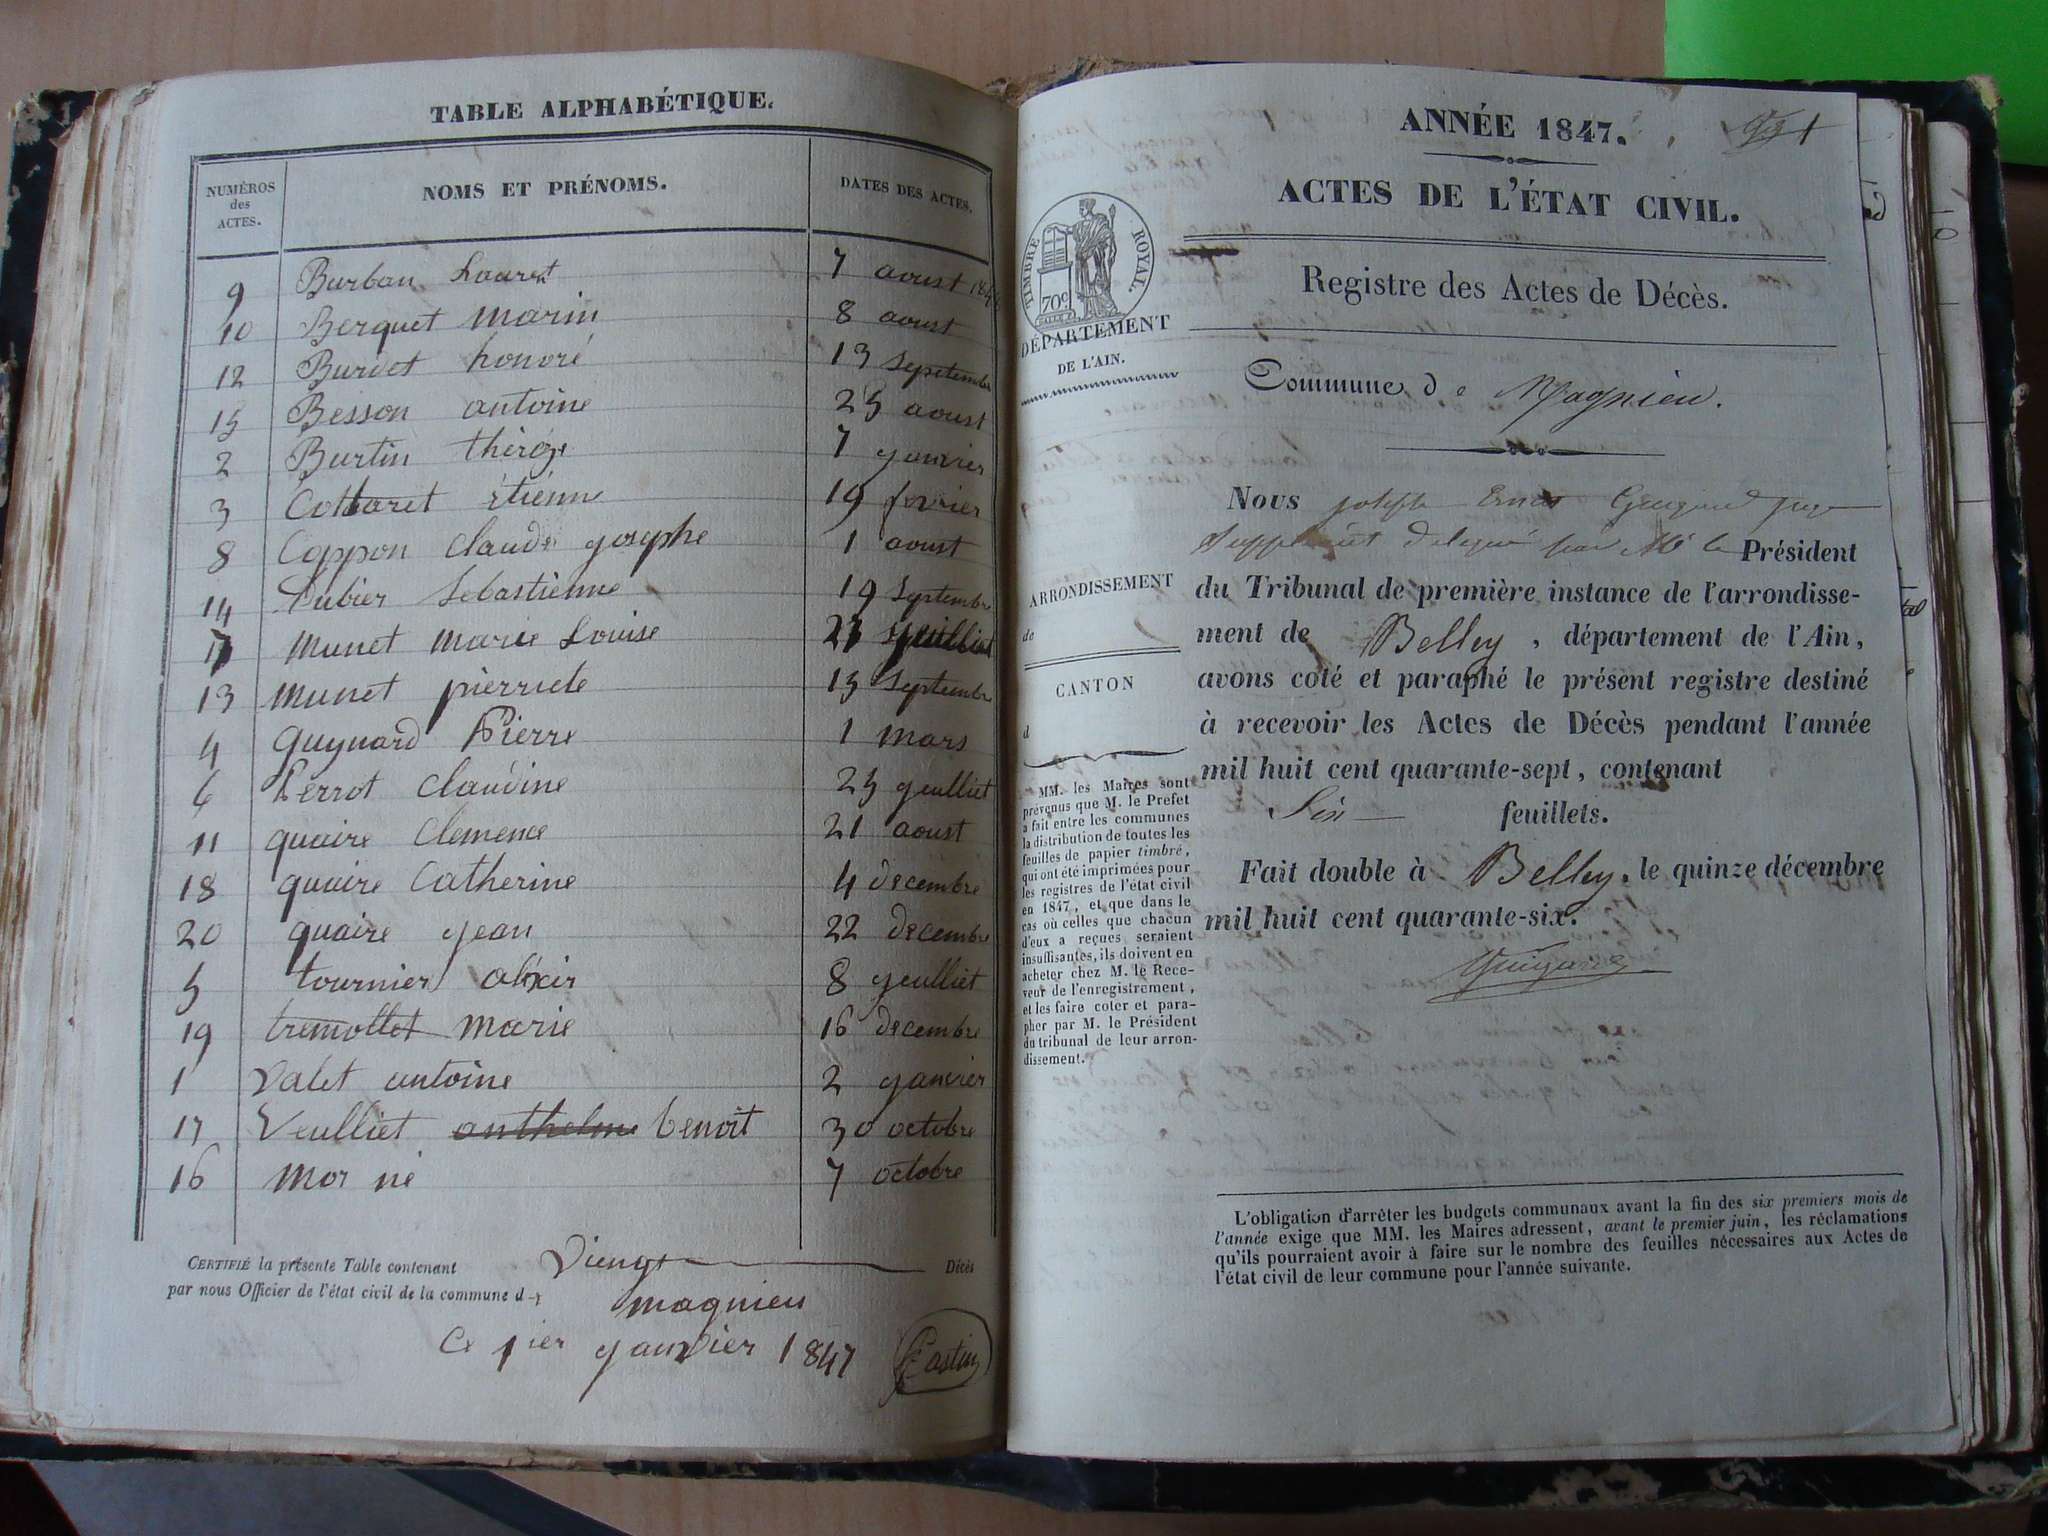 TABLE ALPHABÉTIQUE.
NUMÉROS des ACTES. NOMS ET PRÉNOMS. DATES DES ACTES.
9 Burban 7 aoust
10 Berquet marin 8 aoust
12 Burdet honoré 13 Septembre
15 Besson antoine 25 aoust
2 Burtin 7 janvier
3 Cottaret étienne 19 fevrier
8 Coppon Claude josephe 1 aoust
14 Cubier Sebastienne 19 Septembre
7 munet marie Louise
13 munet pierrete 15 Septembre
4 guynard Pierre 1 mars
6 Perrot Claudine 25 jeulliet
11 quaire Clemence 21 aoust
18 quaire Catherine 4 decembre
20 quaire jean 22 decembre
5 tournier 8 jeulliet
19 tremollet marie 16 decembre
1 Valet antoine 2 janvier
17 Veulliet anthelme benoit 30 octobre
16 mor né 7 octobre
CERTIFIÉ la présente Table contenant Viengt Décès
par nous Officier de l'état civil de la commune de
magnieu
Ce 1ier janvier 1847 Castin
ANNÉE 1847.
ACTES DE L'ÉTAT CIVIL.
TIMBRE ROYAL.
70c
DÉPARTEMENT
DE L'AIN.
Registre des Actes de Décès.
Commune de Magnieu.
ARRONDISSEMENT
de
CANTON
d
MM. les Maires sont
prévenus que M. le Préfet
a fait entre les communes
la distribution de toutes les
feuilles de papier timbré,
qui ont été imprimées pour
les registres de l'état civil
en 1847, et que dans le
cas où celles que chacun
d'eux a reçues seraient
insuffisantes, ils doivent en
acheter chez M. le Rece-
veur de l'enregistrement,
et les faire coter et para-
pher par M. le Président
du tribunal de leur arron-
dissement.
Nous joseph Ernest Guigard juge
Suppléant délégué par Mr le Président
du Tribunal de première instance de l'arrondisse-
ment de Belley, département de l'Ain,
avons coté et paraphé le présent registre destiné
à recevoir les Actes de Décès pendant l'année
mil huit cent quarante-sept, contenant
Six feuillets.
Fait double à Belley, le quinze décembre
mil huit cent quarante-six.
L'obligation d'arrêter les budgets communaux avant la fin des six premiers mois de
l'année exige que MM. les Maires adressent, avant le premier juin, les réclamations
qu'ils pourraient avoir à faire sur le nombre des feuilles nécessaires aux Actes de
l'état civil de leur commune pour l'année suivante.